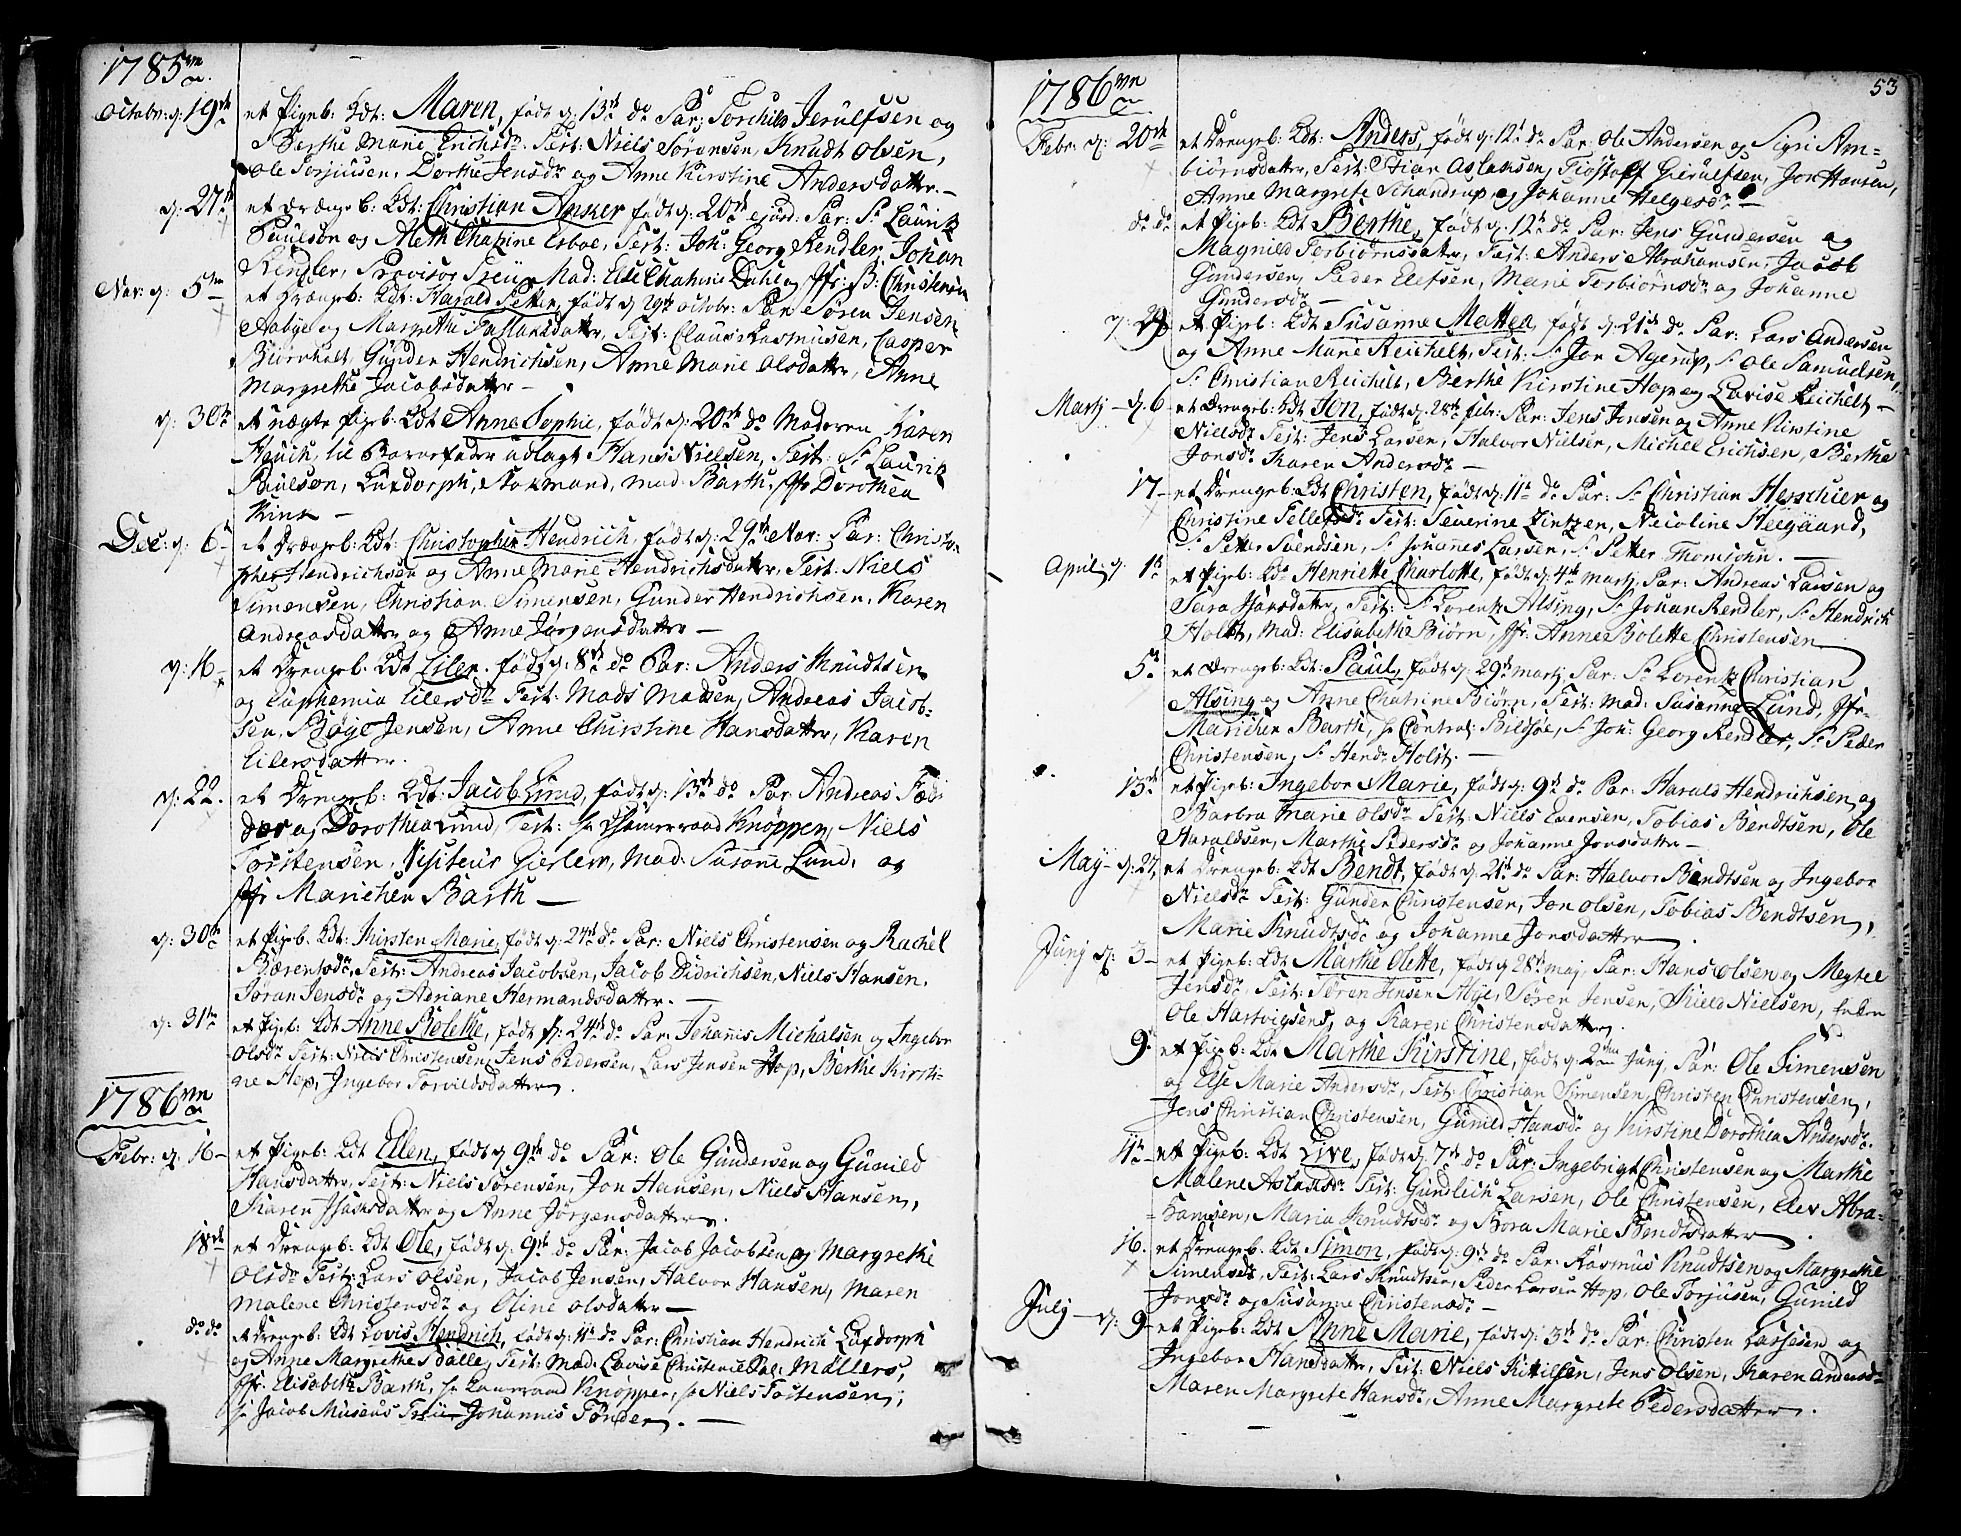 1785
Octobr: d: 19de et Pigeb: Kdt: Maren, født d: 13de do Par: Torchild Jerulfsen og
Berthe Marie Erichsdr. Test: Niels Sørensen, Knudt Olsen,
Ole Torjusen, Dorthe Jensdr og Anne Kirstine Andersdatter. —
d: 27de et Drængeb: Kdt: Christian Anker født d: 20de ejusd: Par: Sr Lauritz
Paulson og Aleth Chatrine Esboe, Test: Joh: Georg Rendler, Johan
Rendler, Provisor Treü, Mad: Else Chatrine Dahl og Jfr: B: Christensen
Nov: d: 5te et Drængeb: Kdt: Harald Peter, født d 29de octobr: Par Søren Jensen
Aabye og Margrethe Tallaksdatter, Test: Claus Rasmussen, Casper
Burrholt, Gunder Hendrichsen, Anne Marie Olsdatter, Anne
Margrethe Jacobsdatter —
d: 30te et uægte Pigeb: Kdt Anne Sophie, født d: 20de do Moderen Karen
Houch, til Barnefader udlagt Hans Nielsen, Test: Sr Lauritz
Paulson, Luxdorph, Stokmand, Mad: Barth, Jfr Dorothea
Kink —
Dec: d: 6te et Drængeb: Kdt: Christopher Hendrich, født d: 29de Nov: Par: Christo-
pher Hendrichsen og Anne Marie Hendrichsdatter, Test: Niels
Simensen, Christian Simensen, Gunder Hendrichsen, Karen
Andreasdatter og Anne Jørgensdatter —
d: 16 et Drengeb: Kdt Eiler. født d: 8de do Par: Anders Knudtsen
og Euphemia Eilersdr Test: Mads Madsen, Andreas Jacob-
sen, Bøye Jensen, Anne Chirstine Hansdatter, Karen
Eilersdatter.
d: 22. et Drengeb: Kdt: Jacob Lund, født d: 13de do Par: Andreas Fæd-
der og Dorothea Lund, Test: Hr Kamerraad Knøppen, Niels
Torstensen, Visiteur Gierløw, Mad: Susane Lund, og
Jfr Marichen Barth —
d: 30te et Pigeb: Kdt: Kirsten Marie, født d: 24de do Par: Niels Christensen og Rachel
Bærentsdr, Test: Andreas Jacobsen, Jacob Didrichsen, Niels Hansen,
Jøran Jensdr og Adriane Hermandsdatter. —
d: 31te et Pigeb: Kdt Anne Bolette, født d: 24de do Par: Johanis Michalsen og Ingebor
Olsdr Test: Niels Christensen, Jens Pedersen, Lars Jensen Hop, Berthe Kirsti-
ne Hop, Ingebor Torvildsdatter.
1786
Febr: d: 16 et Pigeb: Kdt Ellen, født d: 9de do Par: Ole Gundersen og Gunild
Hansdatter, Test: Niels Sørensen, Jon Hansen, Niels Hansen,
Karen Isaksdatter og Anne Jørgensdatter.
18de et Drengeb: Kdt Ole, født d: 9de do Par: Jacob Jacobsen og Margrethe
Olsdr Test: Lars Olsen, Jacob Jensen, Halvor Hansen, Maren
Malene Christensdr og Oline Olsdatter —
do do et Drengeb: Kdt Lovis Hendrich, født d: 11te do Par: Christian Hendrich Luxdorph
og Anne Margrethe Sdalle, Test: Mad: Lovise Christence Møllers,
Jfr. Elisabeth Barth, Hr Kamerraad Knøppen, Hr Niels Tostensen,
Hr Jacob Museus Treü Johannis Tønder. —
53
1786
Febr: d: 20de et Drengeb: Kdt: Anders, født d: 12te do Par: Ole Andersen og Sigri Am-
biørnsdatter, Test: Stian Aslaksen, Tiøstolf Gierulfsen, Jon Hansen,
Anne Margrete Schandrup og Johanne Helgesdr —
do do et Pigeb: Kdt Berthe, født d: 12te do Par: Jens Gundersen og
Magnild Torbiørnsdatter, Test: Anders Abrahamsen, Jacob
Gundersen, Peder Elefsen, Marie Torbiørnsdr og Johanne
Gundersdr —
d: 29 et Pigeb: Kdt Susanne Mattea, født d: 21de do Par: Lars Andersen
og Anne Marie Reichelt, Test: Sr Jon Agerup, Sr Ole Samuelsen,
Sr Christian Reichelt, Berthe Kirstine Hop og Lovise Reichelt —
Martj d. 6 et Drengeb: Kdt Jon, født d: 28de febr: Par: Jens Jensen og Anne Kirstine
Nielsdr Test: Jens Larsen, Halvor Nielsen, Michel Erichsen, Berthe
Jonsdr Karen Andersdr —
17 et Drengeb: Kdt Christen, født d: 11te do Par: Sr Christian Herschier og
Christine Tellefsdr Test: Severine Zintzen, Nicoline Heegaard,
Sr Petter Svendsen, Sr Johannes Larsen, Sr Petter Thomsohn. —
April: d: 1te et Pigeb: Kdt Henriette Charlotte, født d: 4de Martj Par: Andreas Larsen og
Sara Isaksdatter, Test: Sr Lorentz Alsing, Sr Johan Rendler, Sr Hendrich
Holst, Mad: Elisabeth Biørn, Jfr: Anne Bolette Christensen
5te et Drengeb: Kdt: Paul, født d: 29de martj, Par: Sr Lorentz Christian
Alsing og Anne Chatrine Biørn, Test: Mad: Susanne Lund, Jfr.
Marichen Barth, Hr Control: Bildsøe, Sr Joh: Georg Rendler, Sr Peder
Christensen, Sr Hendr Holst.
13de et Pigeb: Ingebor Marie, født d: 9de do Par: Harald Hendrichsen og
Barbra Marie Olsdr Test: Niels Evensen, Tobias Bendtsen, Ole
Haraldsen, Marthe Pedersdr og Johanne Jonsdatter —
May d: 27 et Drengeb: Kdt Bendt, født d. 21de do Par: Halvor Bendtsen og Ingebor
Nielsdr Test: Gunder Christensen, Jon Olsen, Tobias Bendtsen,
Marie Knudtsdr og Johanne Jonsdatter.
Junj d: 3 et Pigeb: Kdt Marthe Olette, født d 28de maj, Par: Hans Olsen og Megtel
Jensdr, Test: Søren Jensen Alye, Søren Jensen, Niels Nielsen,
Ole Hartvigsens, og Karen Christensdatter.
9de et Pigeb: Kdt Marthe Kirstine, født d: 2den Junj Par: Ole Simensen
og Else Marie Andersdr, Test: Christian Simensen, Christen Christensen,
Jens Christian Christensen, Gunild Hansdr og Kirstine Dorothea Andersdr.
11te et Pigeb: Kdt Live, født d: 7de do Par: Ingebrigt Christensen og Marthe
Malene Aslaksdr Test: Gundleich Larsen, Ole Christensen, Elev Abra-
hamsen, Maria Knudtsdr og Bora Marie Bendtsdatter.
16. et Drengeb: Kdt Simon, født d: 9de do Par: Rasmus Knudtsen og Margrethe
Simensdr, Test: Lars Knudtsen, Peder Larsen Hop, Ole Torjusen, Gunild
Jonsdr og Susanne Christensdr —
Julj d: 9 et Pigeb: Kdt Anne Marie, født d: 3de do Par: Christen Larsen og
Ingebor Hansdatter, Test: Niels Kittilsen, Jens Olsen, Karen Andersdr
Maren Margrete Hansdr, Anne Margrete Pedersdatter.